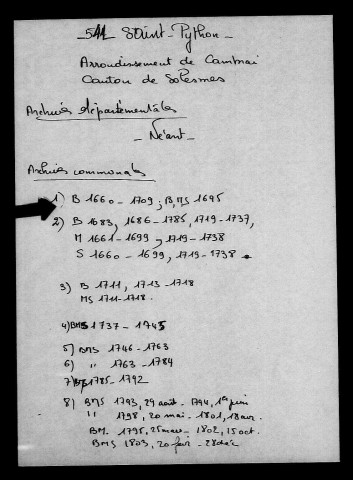 541 Saint-Python
Arrondissement de Cambrai
Canton de Solesmes
Archives départementales
- Néant -
Archives communales
1) B 1660 - 1709 ; B, MS 1695
2) B 1683, 1686 - 1785, 1719 - 1737,
M 1661 - 1699, 1719 - 1738
S 1660 - 1699, 1719 - 1738
3) B 1711, 1713 - 1718
MS 1711 - 1718.
4) BMS 1737 - 1745
5) BMS 1746 - 1763
6) " 1763 - 1784
7) BMS 1785 - 1792
8) BMS 1793, 29 août - 1794, 1er juin
" 1798, 20 mai - 1801, 18 avr.
BM 1795, 25 mars - 1802, 15 oct.
BMS 1803, 20 fév - 28 déc